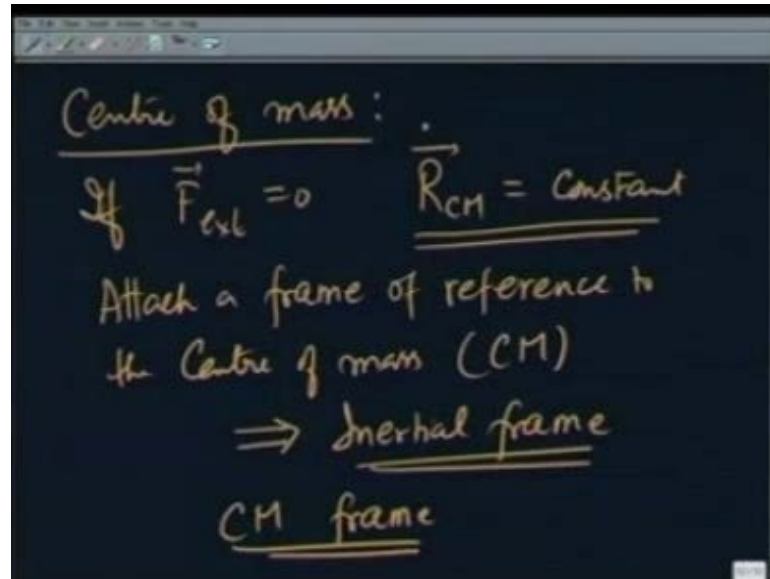 Centre of mass :
If F⃗ext = 0   Ṙ⃗CM = Constant
Attach a frame of reference to
the Centre of mass (CM)
⇒ Inertial frame
CM frame